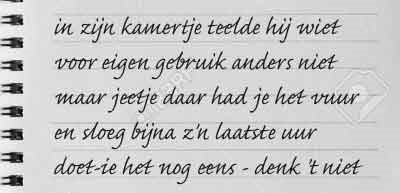 in zijn kamertje teelde hij wiet
voor eigen gebruik anders niet
maar jeetje daar had je het vuur
en sloeg bijna z'n laatste uur
doet-ie het nog eens - denk 't niet